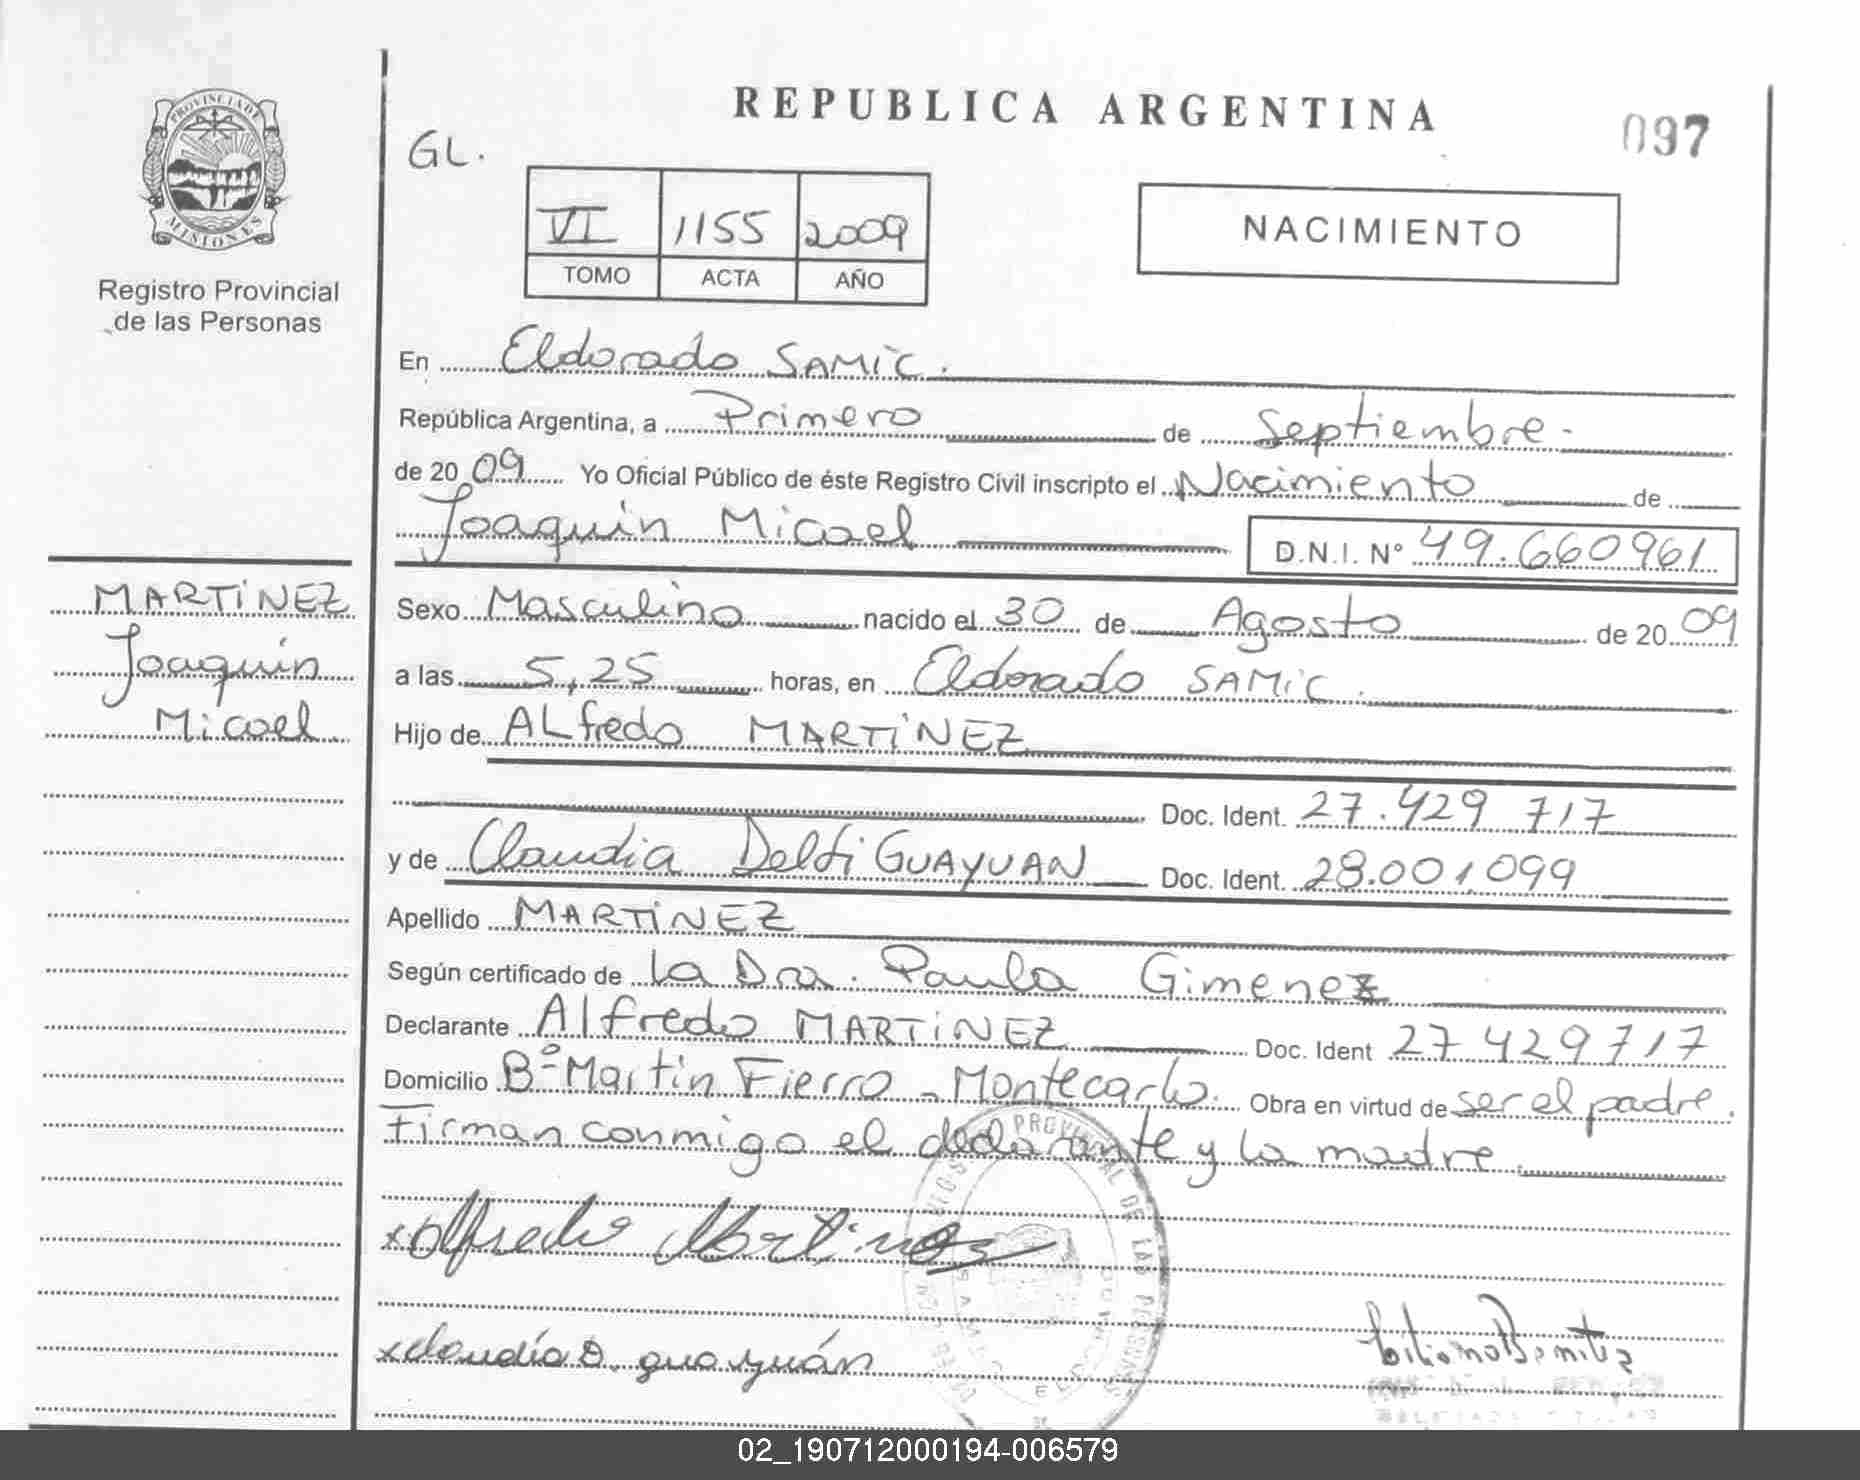 PROVINCIA DE
MISIONES
Registro Provincial
de las Personas
REPUBLICA ARGENTINA
097
GL.
VI 1155 2009
TOMO ACTA AÑO
NACIMIENTO
En Eldorado SAMIC.
República Argentina, a Primero de Septiembre.
de 20 09 Yo Oficial Público de éste Registro Civil inscripto el Nacimiento de
Joaquin Micael D.N.I. Nº 49.660961
MARTINEZ
Joaquin
Micael
Sexo Masculino nacido el 30 de Agosto de 20 09
a las 5,25 horas, en Eldorado SAMIC.
Hijo de ALfredo MARTINEZ
Doc. Ident. 27.429 717
y de Claudia Delfi GUAYUAN Doc. Ident. 28.001,099
Apellido MARTINEZ
Según certificado de la Dra. Paula Gimenez
Declarante Alfredo MARTINEZ Doc. Ident 27 429717
Domicilio Bº Martin Fierro - Montecarlo. Obra en virtud de ser el padre.
Firman conmigo el declarante y la madre
PROVINCIAL DE LAS PERSONAS
x Alfredo Martinez
x Claudia D. guayuán